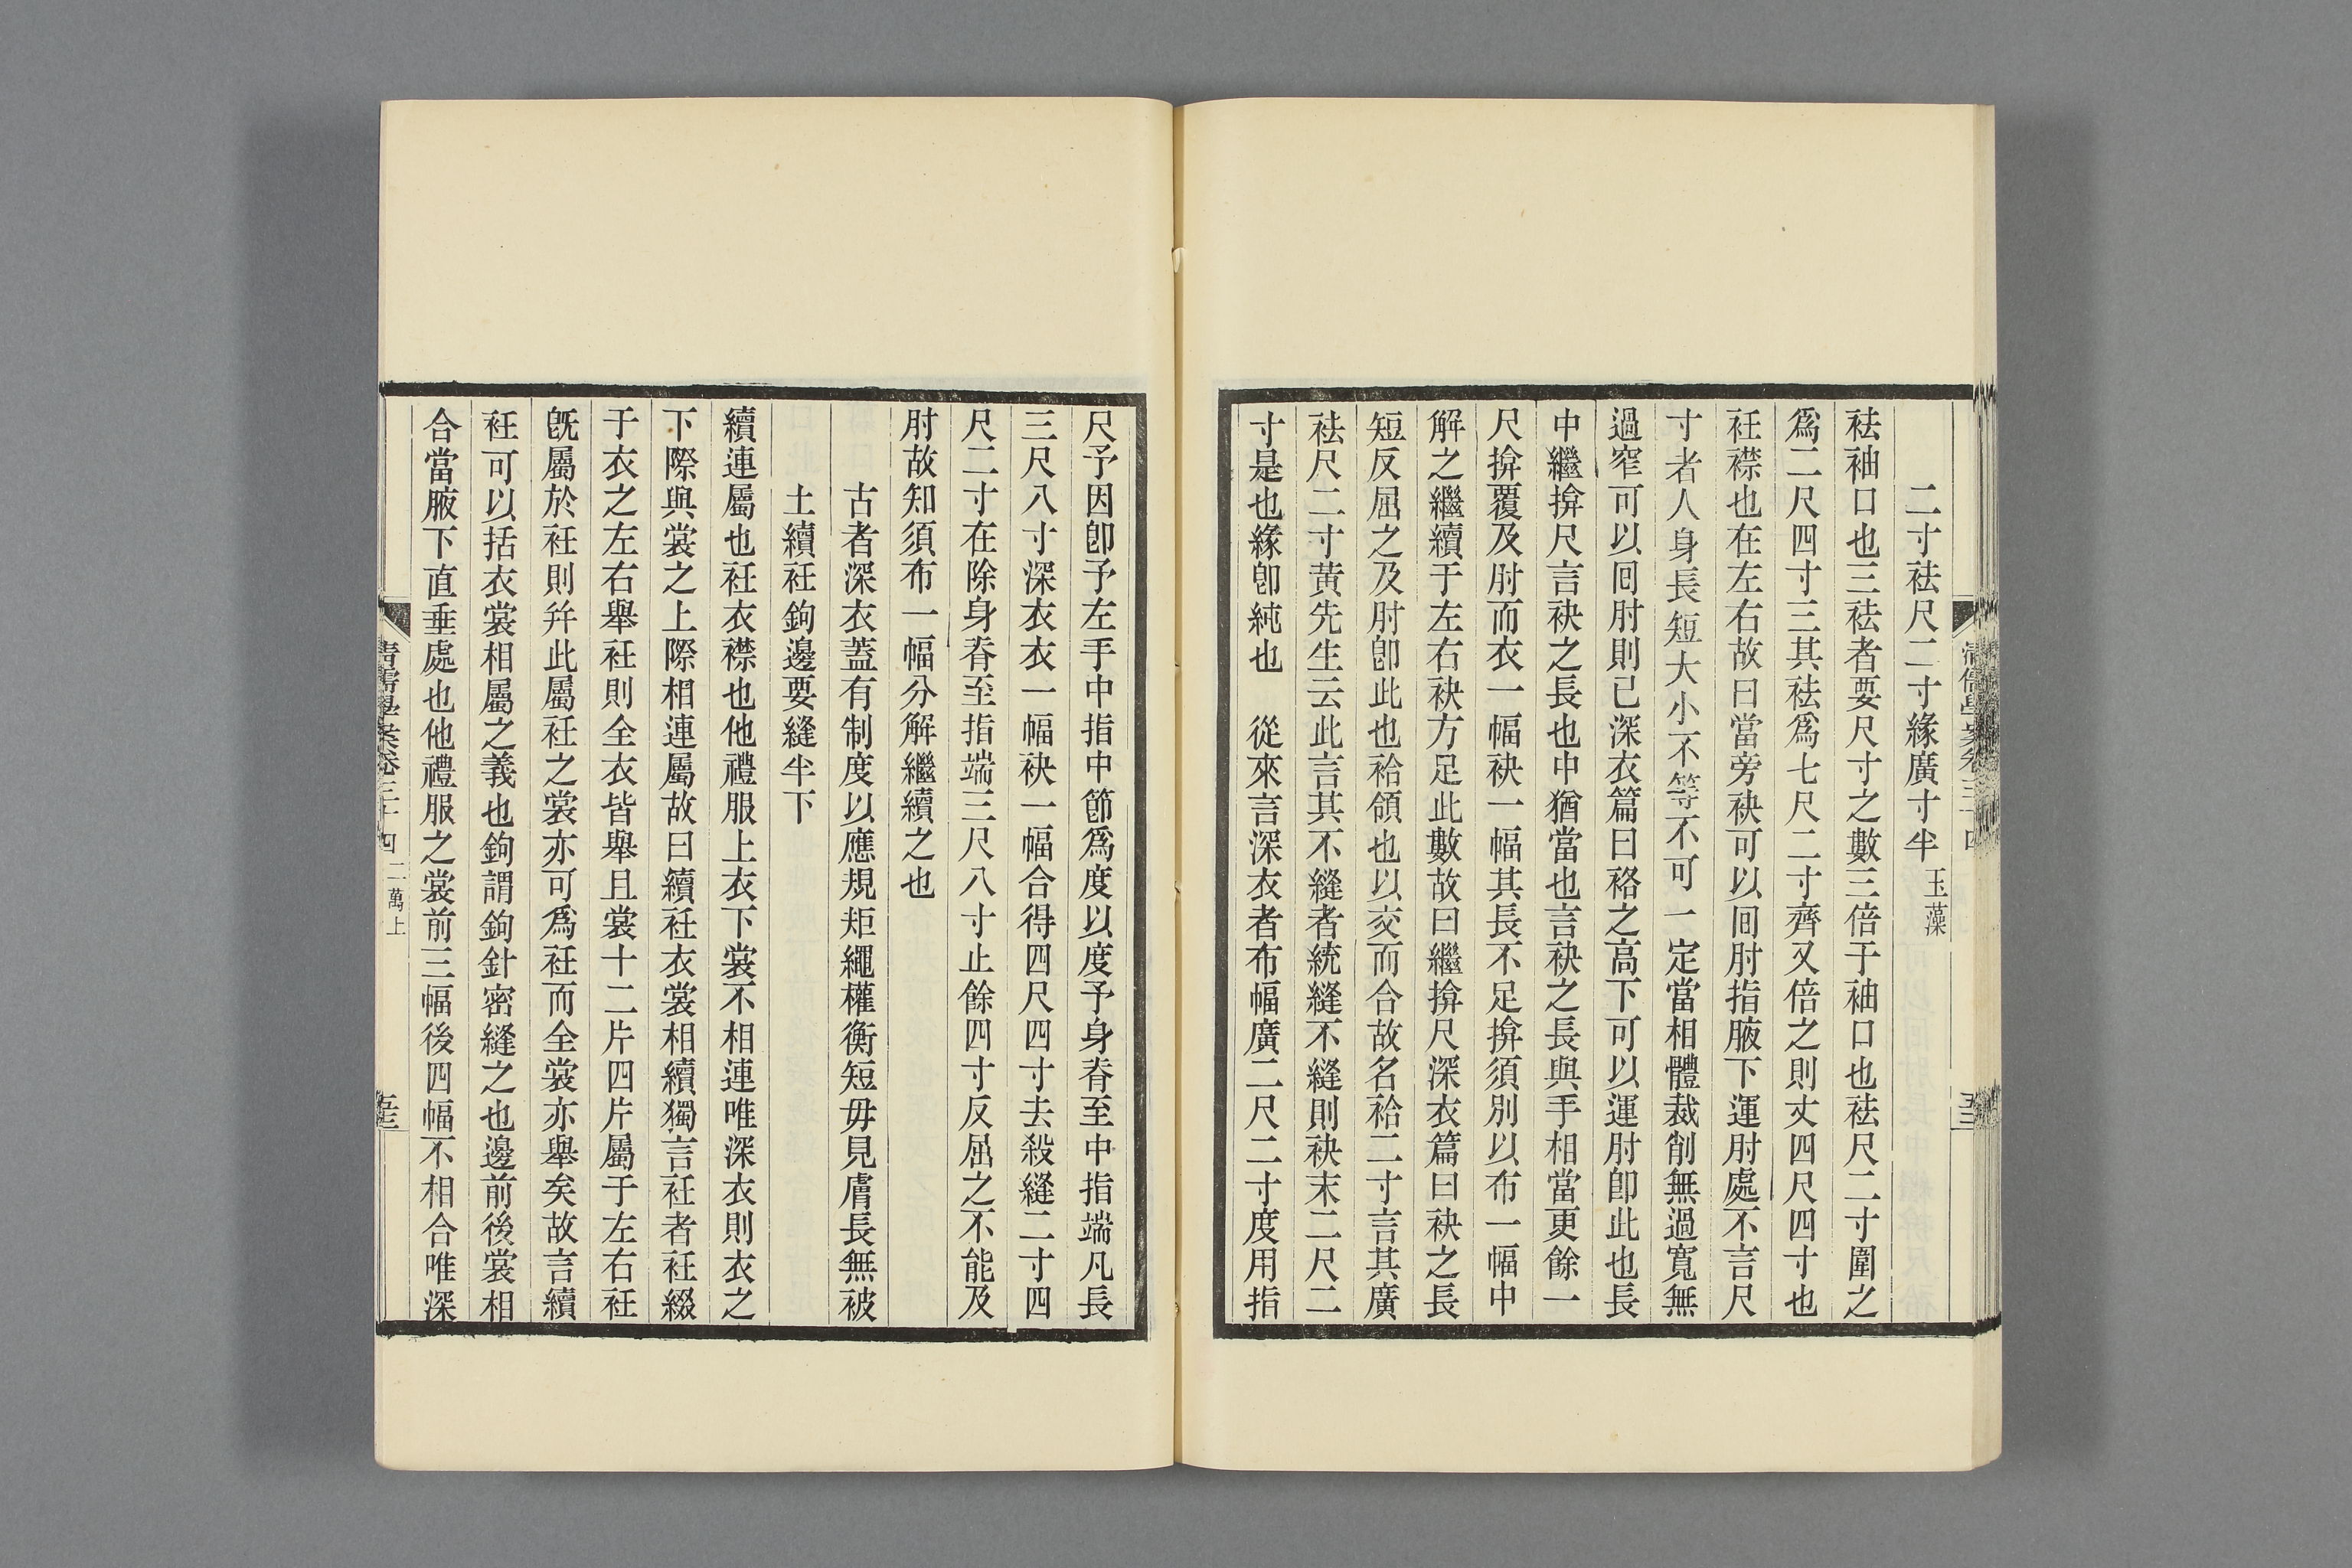 二寸袪尺二寸緣廣寸半玉藻
袪袖口也三袪者要尺寸之數三倍于袖口也袪尺二寸圍之
爲二尺四寸三其袪爲七尺二寸齊又倍之則丈四尺四寸也
衽襟也在左右故曰當旁袂可以囘肘指腋下運肘處不言尺
寸者人身長短大小不等不可一定當相體裁削無過寬無
過窄可以囘肘則已深衣篇曰袼之高下可以運肘卽此也長
中繼揜尺言袂之長也中猶當也言袂之長與手相當更餘一
尺揜覆及肘而衣一幅袂一幅其長不足揜須別以布一幅中
解之繼續于左右袂方足此數故曰繼揜尺深衣篇曰袂之長
短反屈之及肘卽此也袷領也以交而合故名袷二寸言其廣
袪尺二寸黄先生云此言其不縫者統縫不縫則袂末二尺二
寸是也緣卽純也　從來言深衣者布幅廣二尺二寸度用指
尺予因卽予左手中指中節爲度以度予身脊至中指端凡長
三尺八寸深衣衣一幅袂一幅合得四尺四寸去殺縫二寸四
尺二寸在除身脊至指端三尺八寸止餘四寸反屈之不能及
肘故知須布一幅分解繼續之也
古者深衣蓋有制度以應規矩繩權衡短毋見膚長無被
土續衽鉤邊要縫半下
續連屬也衽衣襟也他禮服上衣下裳不相連唯深衣則衣之
下際與裳之上際相連屬故曰續衽衣裳相續獨言衽者衽綴
于衣之左右舉衽則全衣皆舉且裳十二片四片屬于左右衽
旣屬於衽則幷此屬衽之裳亦可爲衽而全裳亦舉矣故言續
衽可以括衣裳相屬之義也鉤謂鉤針密縫之也邊前後裳相
合當腋下直垂處也他禮服之裳前三幅後四幅不相合唯深
清儒學案卷三十四
二萬上